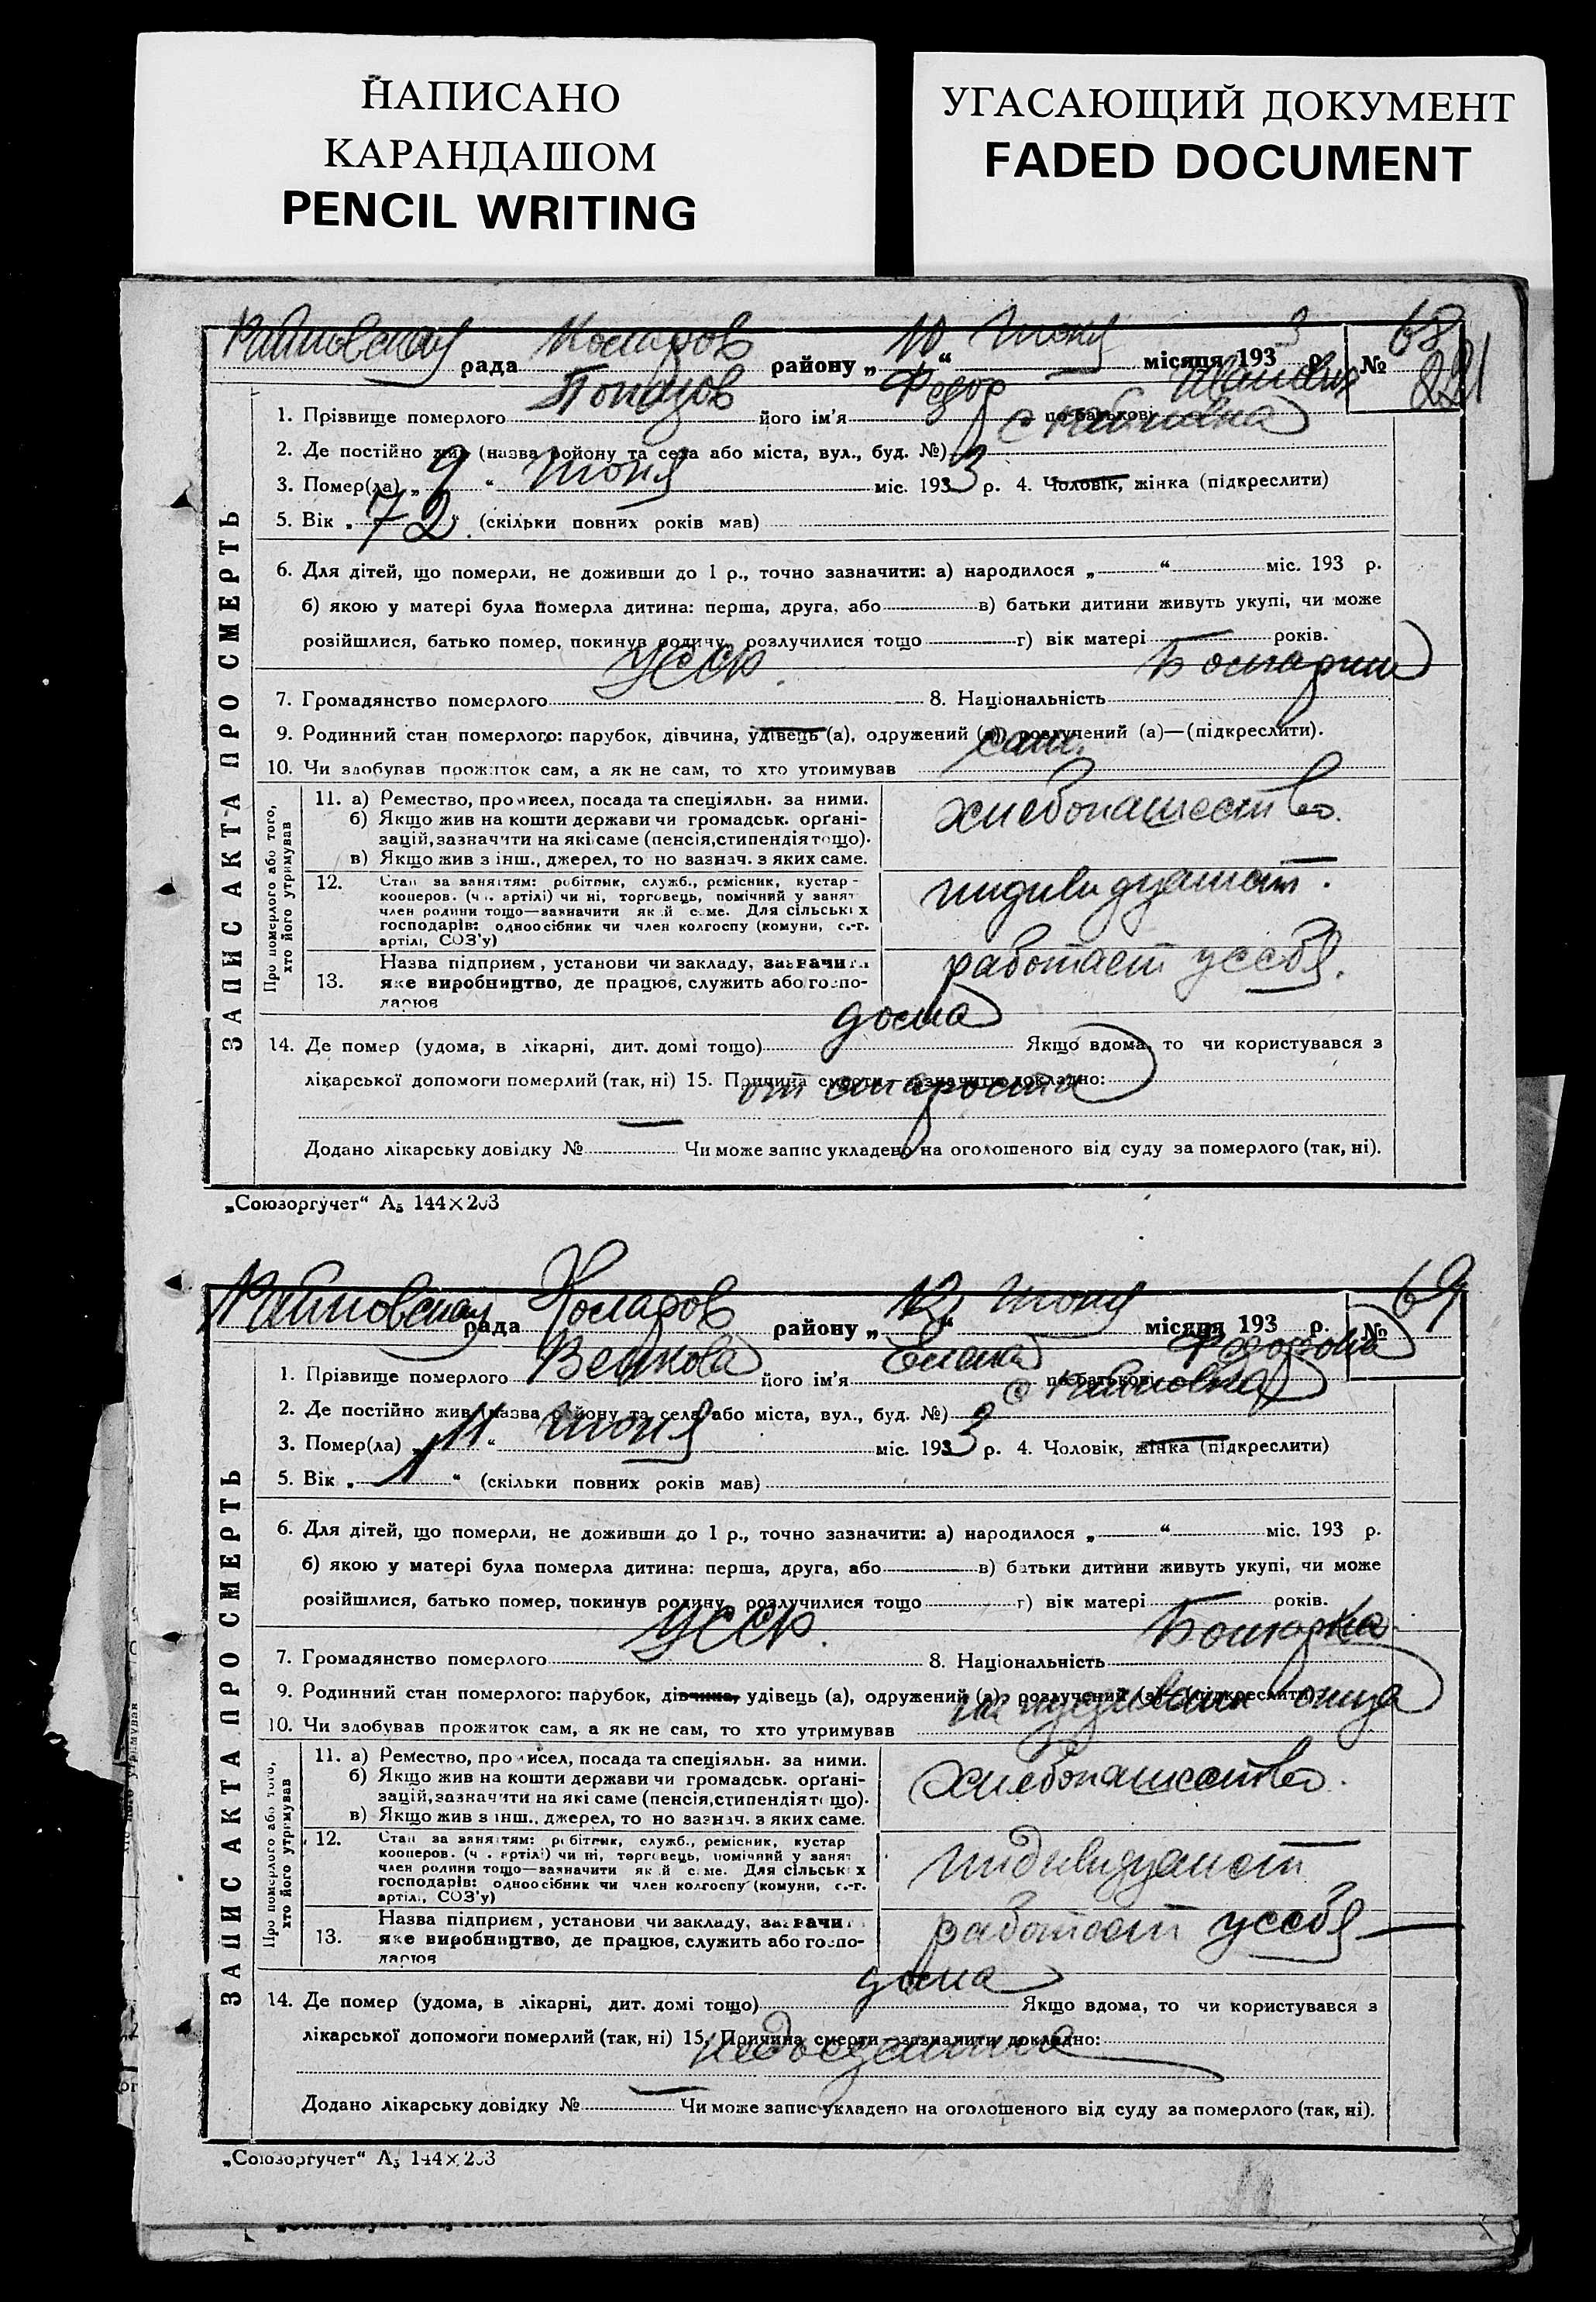 НАПИСАНО
КАРАНДАШОМ
PENCIL WRITING
УГАСАЮЩИЙ ДОКУМЕНТ
FADED DOCUMENT
ЗАПИС АКТА ПРО СМЕРТЬ
рада Коларов району „10“ Июня місяця 1933 р. № 68
221
1. Прізвище померлого його ім'я Федор по батькові Иванович
2. Де постійно жив (назва району та села або міста, вул., буд. №) с
3. Помер(ла) „9“ Июня міс. 1933 р. 4. Чоловік, жінка (підкреслити)
5. Вік „72“ (скільки повних років мав)
6. Для дітей, що померли, не доживши до 1 р., точно зазначити: а) народилося „ “ міс. 193 р.
б) якою у матері була померла дитина: перша, друга, або в) батьки дитини живуть укупі, чи може
розійшлися, батько помер, покинув родину, розлучилися тощо — г) вік матері — років.
7. Громадянство померлого УССР. 8. Національність Болгарин
9. Родинний стан померлого: парубок, дівчина, удівець (а), одружений (а), розлучений (а)—(підкреслити).
10. Чи здобував прожиток сам, а як не сам, то хто утримував сам.
Про померлого або того, хто його утримував
11. а) Ремество, промисел, посада та спеціяльн. за ними.
б) Якщо жив на кошти держави чи громадськ. орґані-
зацій, зазначити на які саме (пенсія, стипендія тощо).
в) Якщо жив з інш., джерел, то но зазнач. з яких саме.
хлебопашество.
12. Стан за заняттям: робітник, служб., ремісник, кустар-
кооперов. (чл. артілі) чи ні, торговець, помічний у занят
член родини тощо—зазначити який саме. Для сільських
господарів: одноосібник чи член колгоспу (комуни, с.-г.
артілі, СОЗ'у)
индивидуалист.
13. Назва підприєм, установи чи закладу, зазначити
яке виробництво, де працює, служить або госпо-
дарює
работает усебя.
14. Де помер (удома, в лікарні, дит. домі тощо) дома Якщо вдома, то чи користувався з
лікарської допомоги померлий (так, ні) 15. Причина смерти—зазначити докладно:
от старости
Додано лікарську довідку № — Чи може запис укладено на оголошеного від суду за померлого (так, ні).
„Союзоргучет“ А5 144×203
ЗАПИС АКТА ПРО СМЕРТЬ
рада Коларов району „12“ Июня місяця 193 р. № 69
1. Прізвище померлого Велкова його ім'я Елена по батькові Федоровна
2. Де постійно жив (назва району та села або міста, вул., буд. №) с
3. Помер(ла) „11“ Июня міс. 1933 р. 4. Чоловік, жінка (підкреслити)
5. Вік „1“ (скільки повних років мав)
6. Для дітей, що померли, не доживши до 1 р., точно зазначити: а) народилося „ “ міс. 193 р.
б) якою у матері була померла дитина: перша, друга, або в) батьки дитини живуть укупі, чи може
розійшлися, батько помер, покинув родину, розлучилися тощо — г) вік матері — років.
7. Громадянство померлого УССР. 8. Національність Болгарка
9. Родинний стан померлого: парубок, дівчина, удівець (а), одружений (а), розлучений (а)—(підкреслити).
10. Чи здобував прожиток сам, а як не сам, то хто утримував на иждивении отца
Про померлого або того, хто його утримував
11. а) Ремество, промисел, посада та спеціяльн. за ними.
б) Якщо жив на кошти держави чи громадськ. орґані-
зацій, зазначити на які саме (пенсія, стипендія тощо).
в) Якщо жив з інш., джерел, то но зазнач. з яких саме.
хлебопашество.
12. Стан за заняттям: робітник, служб., ремісник, кустар
кооперов. (чл. артілі) чи ні, торговець, помічний у занят
член родини тощо—зазначити який саме. Для сільських
господарів: одноосібник чи член колгоспу (комуни, с.-г.
артілі, СОЗ'у)
индивидуалист
13. Назва підприєм, установи чи закладу, зазначити
яке виробництво, де працює, служить або госпо-
дарює
работает усебя
14. Де помер (удома, в лікарні, дит. домі тощо) дома Якщо вдома, то чи користувався з
лікарської допомоги померлий (так, ні) 15. Причина смерти—зазначити докладно:
недоедание
Додано лікарську довідку № — Чи може запис укладено на оголошеного від суду за померлого (так, ні).
„Союзоргучет“ А5 144×203